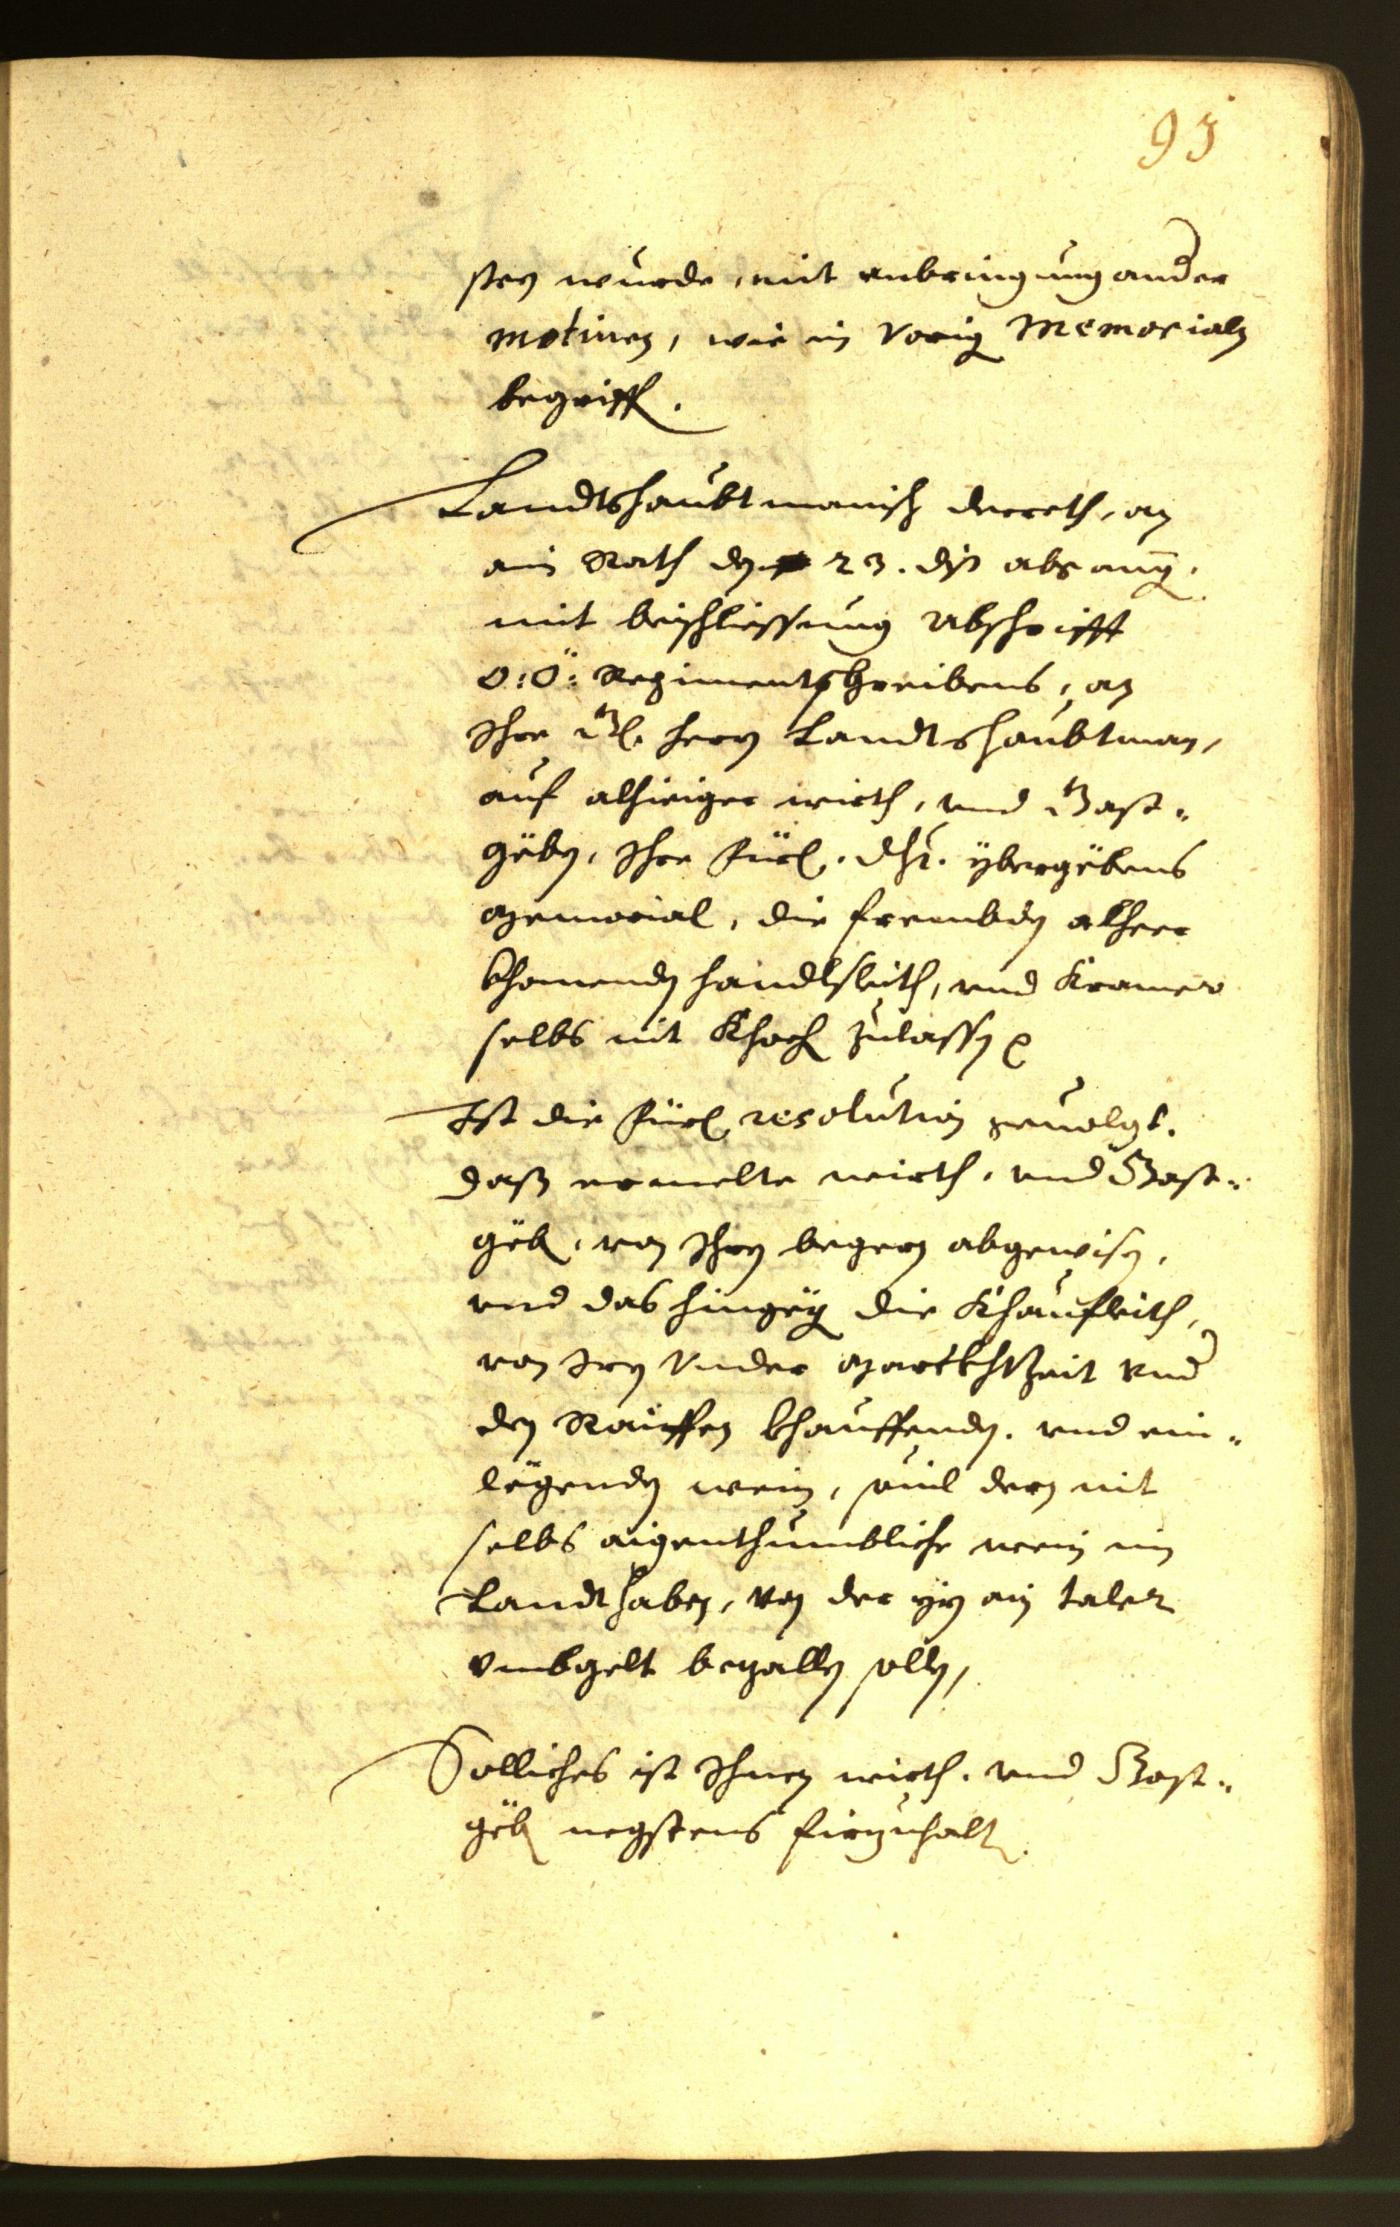 95
sten wurde, mit anbringung ander
motiven, wie in Vorig Memorialn
begriffen.
Landtshaubtmanisch decreth, an
ain Rath den 23. diß abgang.
mit beyschliessung Abschrifft
O: Ö: Regimentschreibens, an
Ihre Gn. herrn Landtshaubtman,
auf alhieiger wirth, und Gast-
geben, Ihre Fürl. dht. ybergebens
memorial, die frembden alherr
khomenden handlsleith, und Kramer
selbs nit Khoch zulassen
Ist die Fürl. resolution ervolgt.
daß ermelte wirth, und Gast-
geb, von Ihren begern abgewisen,
und das hingegen die Khaufleith,
von Iren Under Marckhtzeit Und
den Rauffen khauffenden. und ein-
legenden wein, sovil deren nit
selbs aigenthumbliche wein im
Landt haben, von der yrn ain taler
Umbgelt bezallen sollen,
Solliches ist Ihnen wirth, und Gast-
geb negstens firzuhalten.